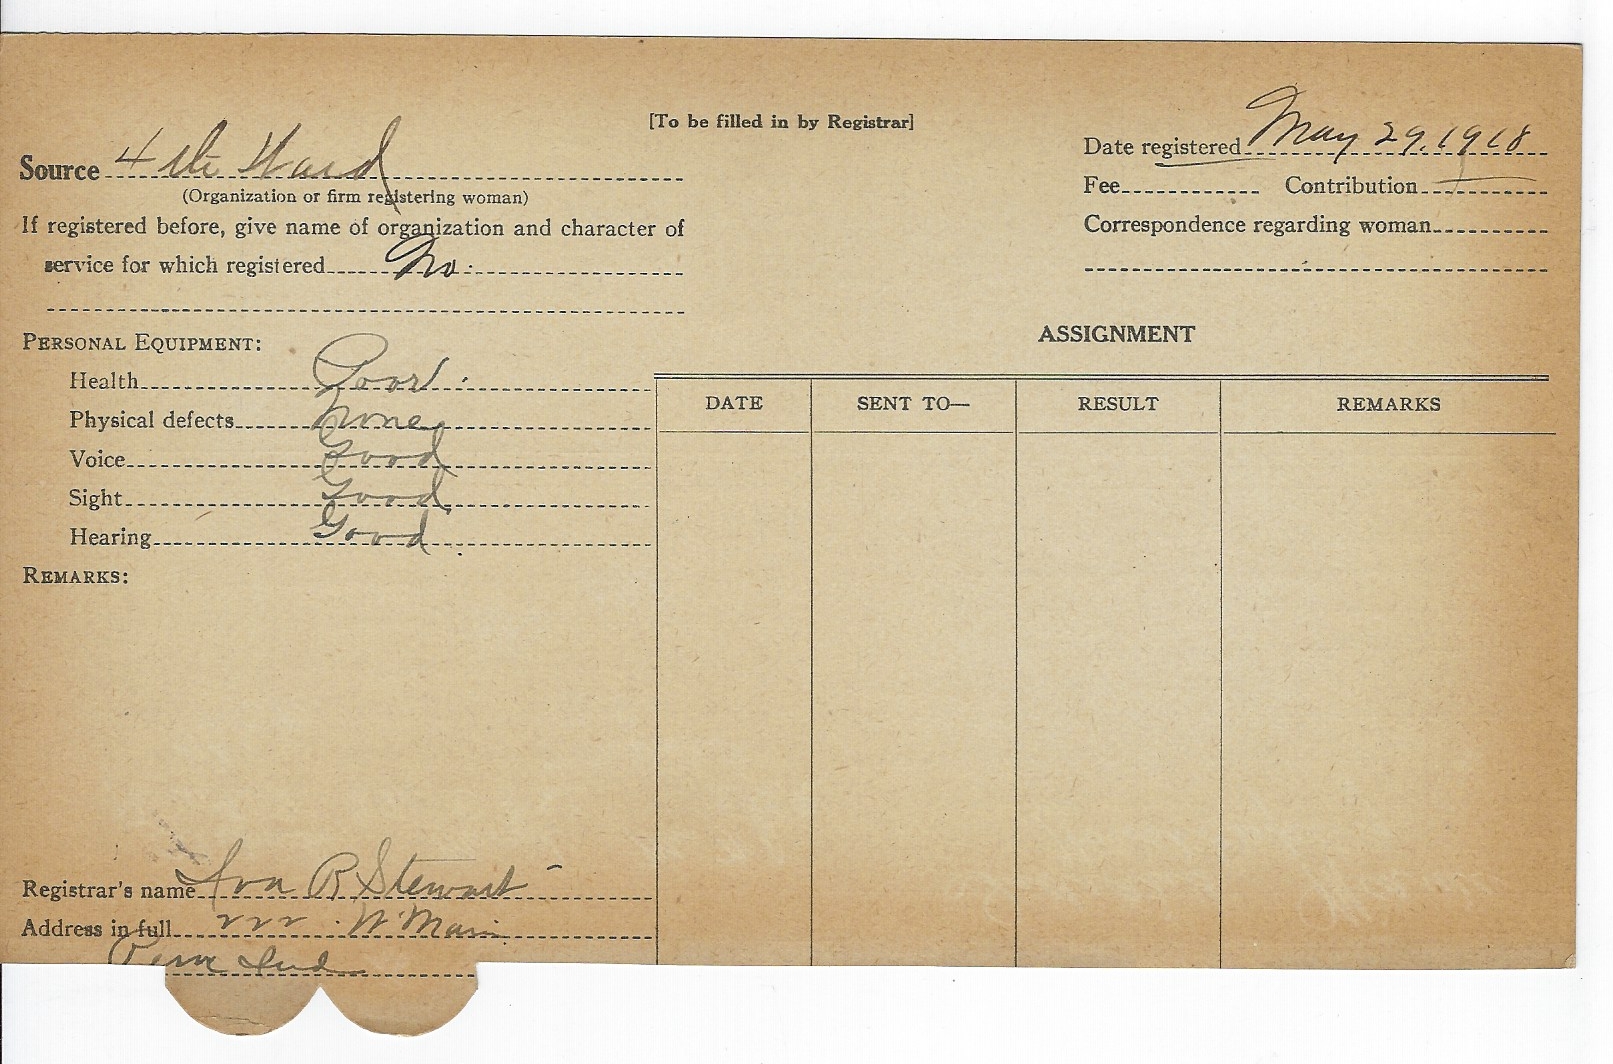 [To be filled in by Registrar]
Source 4 th Ward
(Organization or firm registering woman)
If registered before, give name of organization and character of
service for which registered No.
Date registered May 29, 1918
Fee Contribution
Correspondence regarding woman
PERSONAL EQUIPMENT:
Health Poor.
Physical defects None
Voice Good
Sight Good
Hearing Good
REMARKS:
ASSIGNMENT
DATE SENT TO— RESULT REMARKS
Registrar's name Iva R Stewart
Address in full 222 W Main
Peru Ind